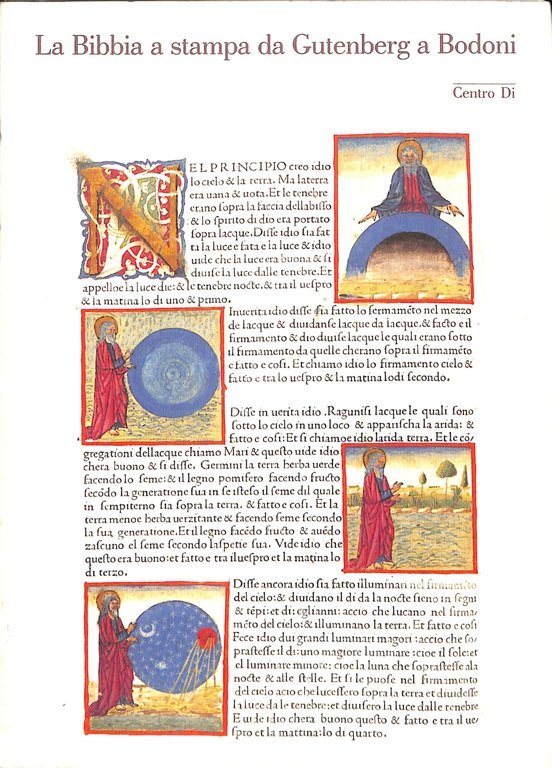 La Bibbia a stampa da Gutenberg a Bodoni
Centro Di
NEL PRINCIPIO creo idio
lo cielo & la terra. Ma laterra
era uana & uota. Et le tenebre
erano sopra la faccia dellabisso
& lo spirito di dio era portato
sopra lacque. Disse idio sia fat
ta la luce e fata e ia luce & idio
uide che la luce era buona & si
diuise la luce dalle tenebre. Et
appelloe la luce die: & le tenebre nocte. & tra il uespro
& la matina lo di uno & primo.
Inuerita idio disse sia fatto lo fermamēto nel mezzo
de lacque & diuidanse lacque da iacque. & facto e il
firmamento & dio diuise lacque le quali erano sotto
il firmamento da quelle cherano sopra il firmamēto
e fatto e cosi. Et chiamo idio lo firmamento cielo &
fatto e tra lo uespro & la matina lodi secondo.
Disse in uerita idio. Ragunisi lacque le quali sono
sotto lo cielo in uno loco & apparischa la arida: &
fatto e cosi: Et si chiamoe idio larida terra. Et le cō
gregationi dellacque chiamo Mari & questo uide idio
chera buono & si disse. Germini la terra herba uerde
facendo lo seme: & il legno pomifero facendo fructo
secōdo la generatione sua in se istesso il seme dil quale
in sempiterno sia sopra la terra. & fatto e cosi. Et la
terra menoe herba uerzitante & facendo seme secondo
la sua generatione. Et il legno facēdo fructo & auēdo
zascuno el seme secondo laspetie sua. Vide idio che
questo era buono: et fatto e tra iluespro et la matina lo
di terzo.
Disse ancora idio sia fatto illuminari nel firmamēto
del cielo: & diuidano il di da la nocte sieno in segni
& tēpi: et di: eglianni: accio che lucano nel firma/
mēto del cielo: & illuminano la terra. Et fatto e cosi
Fece idio dui grandi luminari magori: accio che so/
prastesse il di: uno magiore luminare: cioe il sole: et
el luminare minore: cioe la luna che soprastesse ala
nocte & alle stelle. Et si le puose nel firmamento
del cielo acio che lucessero sopra la terra et diuidesse
la luce da le tenebre: et diuisero la luce dalle tenebre
E uide idio chera buono questo & fatto e tra il ue/
spro et la mattina: lo di quarto.